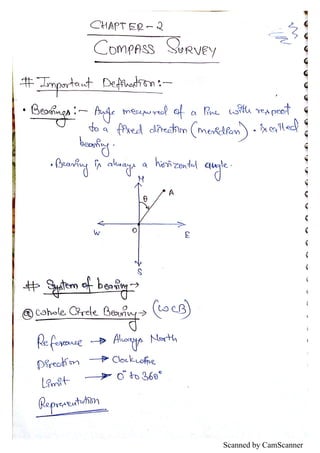 CHAPTER-2
COMPASS SURVEY
# Important Definition:-
• Bearings:- Angle measured of a line with respect
to a fixed direction (meridian). is called
bearing.
• Bearing is always a horizontal angle.
N
A
θ
W O E
S
#> System of bearing →
@ Whole Circle Bearing → (WCB)
Reference → Always North
Direction → Clockwise
Limit → 0° to 360°
Representation
Scanned by CamScanner